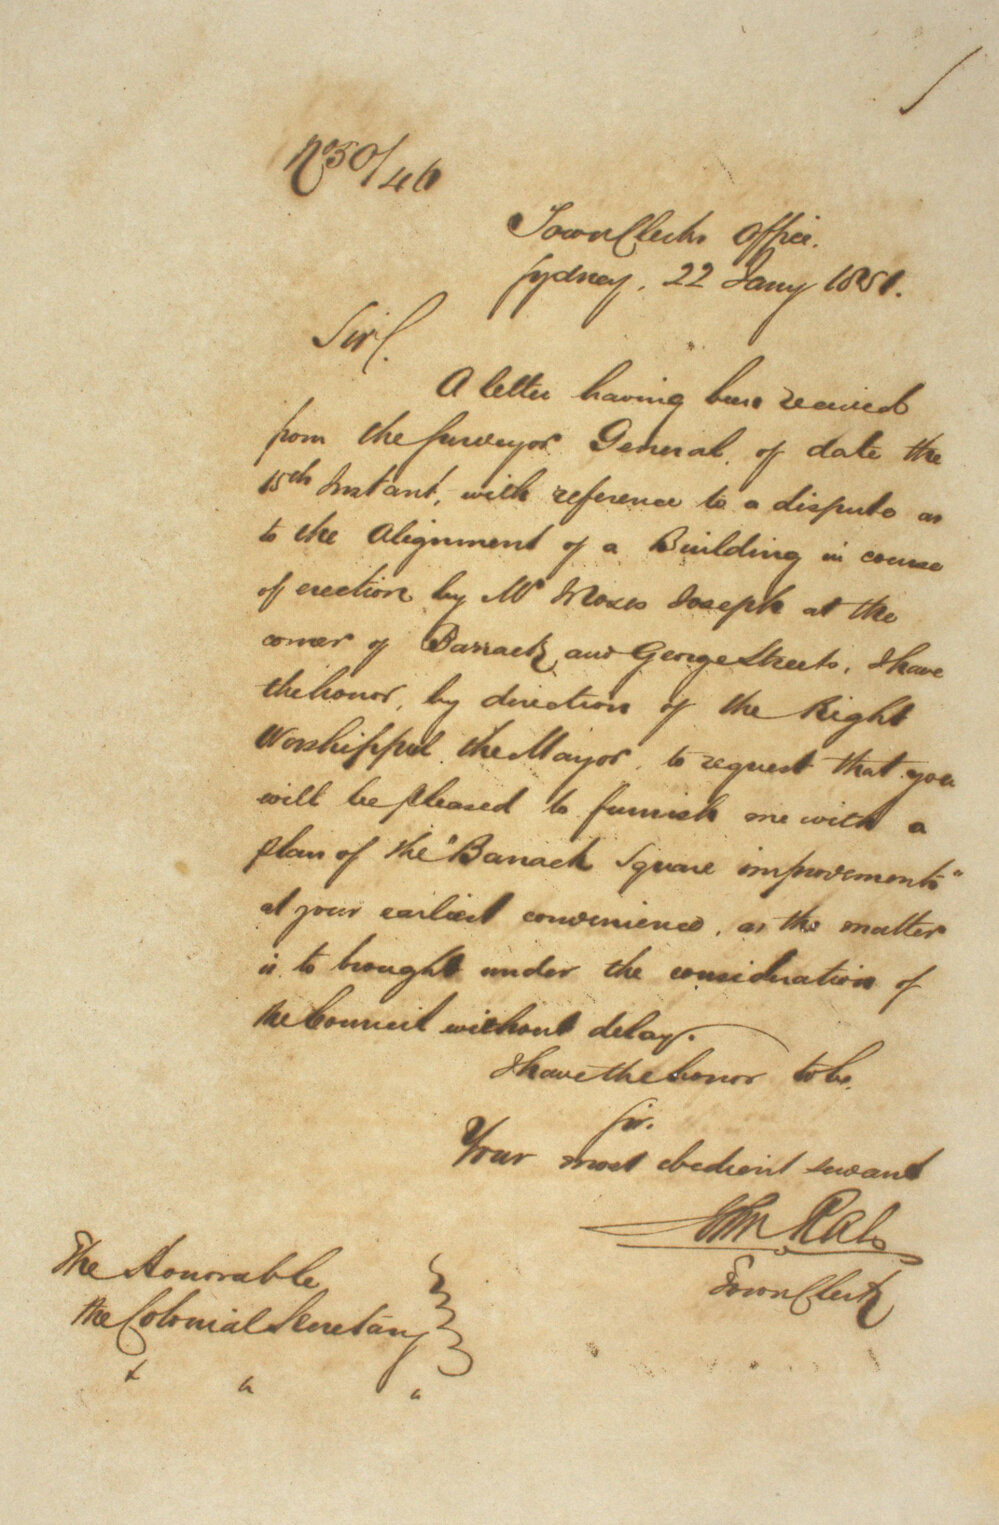 No 50/46
Town Clerks Office.
Sydney, 22 Jany 1851.
Sir.
A letter having been received
from the Surveyor General, of date the
15th Instant, with reference to a dispute as
to the Alignment of a Building in course
of erection by Mr Moses Joseph at the
corner of Barrack and George Streets, I have
the honor, by direction of the Right
Worshipful the Mayor, to request that you
will be pleased to furnish me with a
plan of the "Barrack Square improvements"
at your earliest convenience, as the matter
is to brought under the consideration of
the Council without delay.
I have the honor to be,
Sir.
Your most obedient servant
John Rae
Town Clerk
The Honorable
the Colonial Secretary
&c &c &c